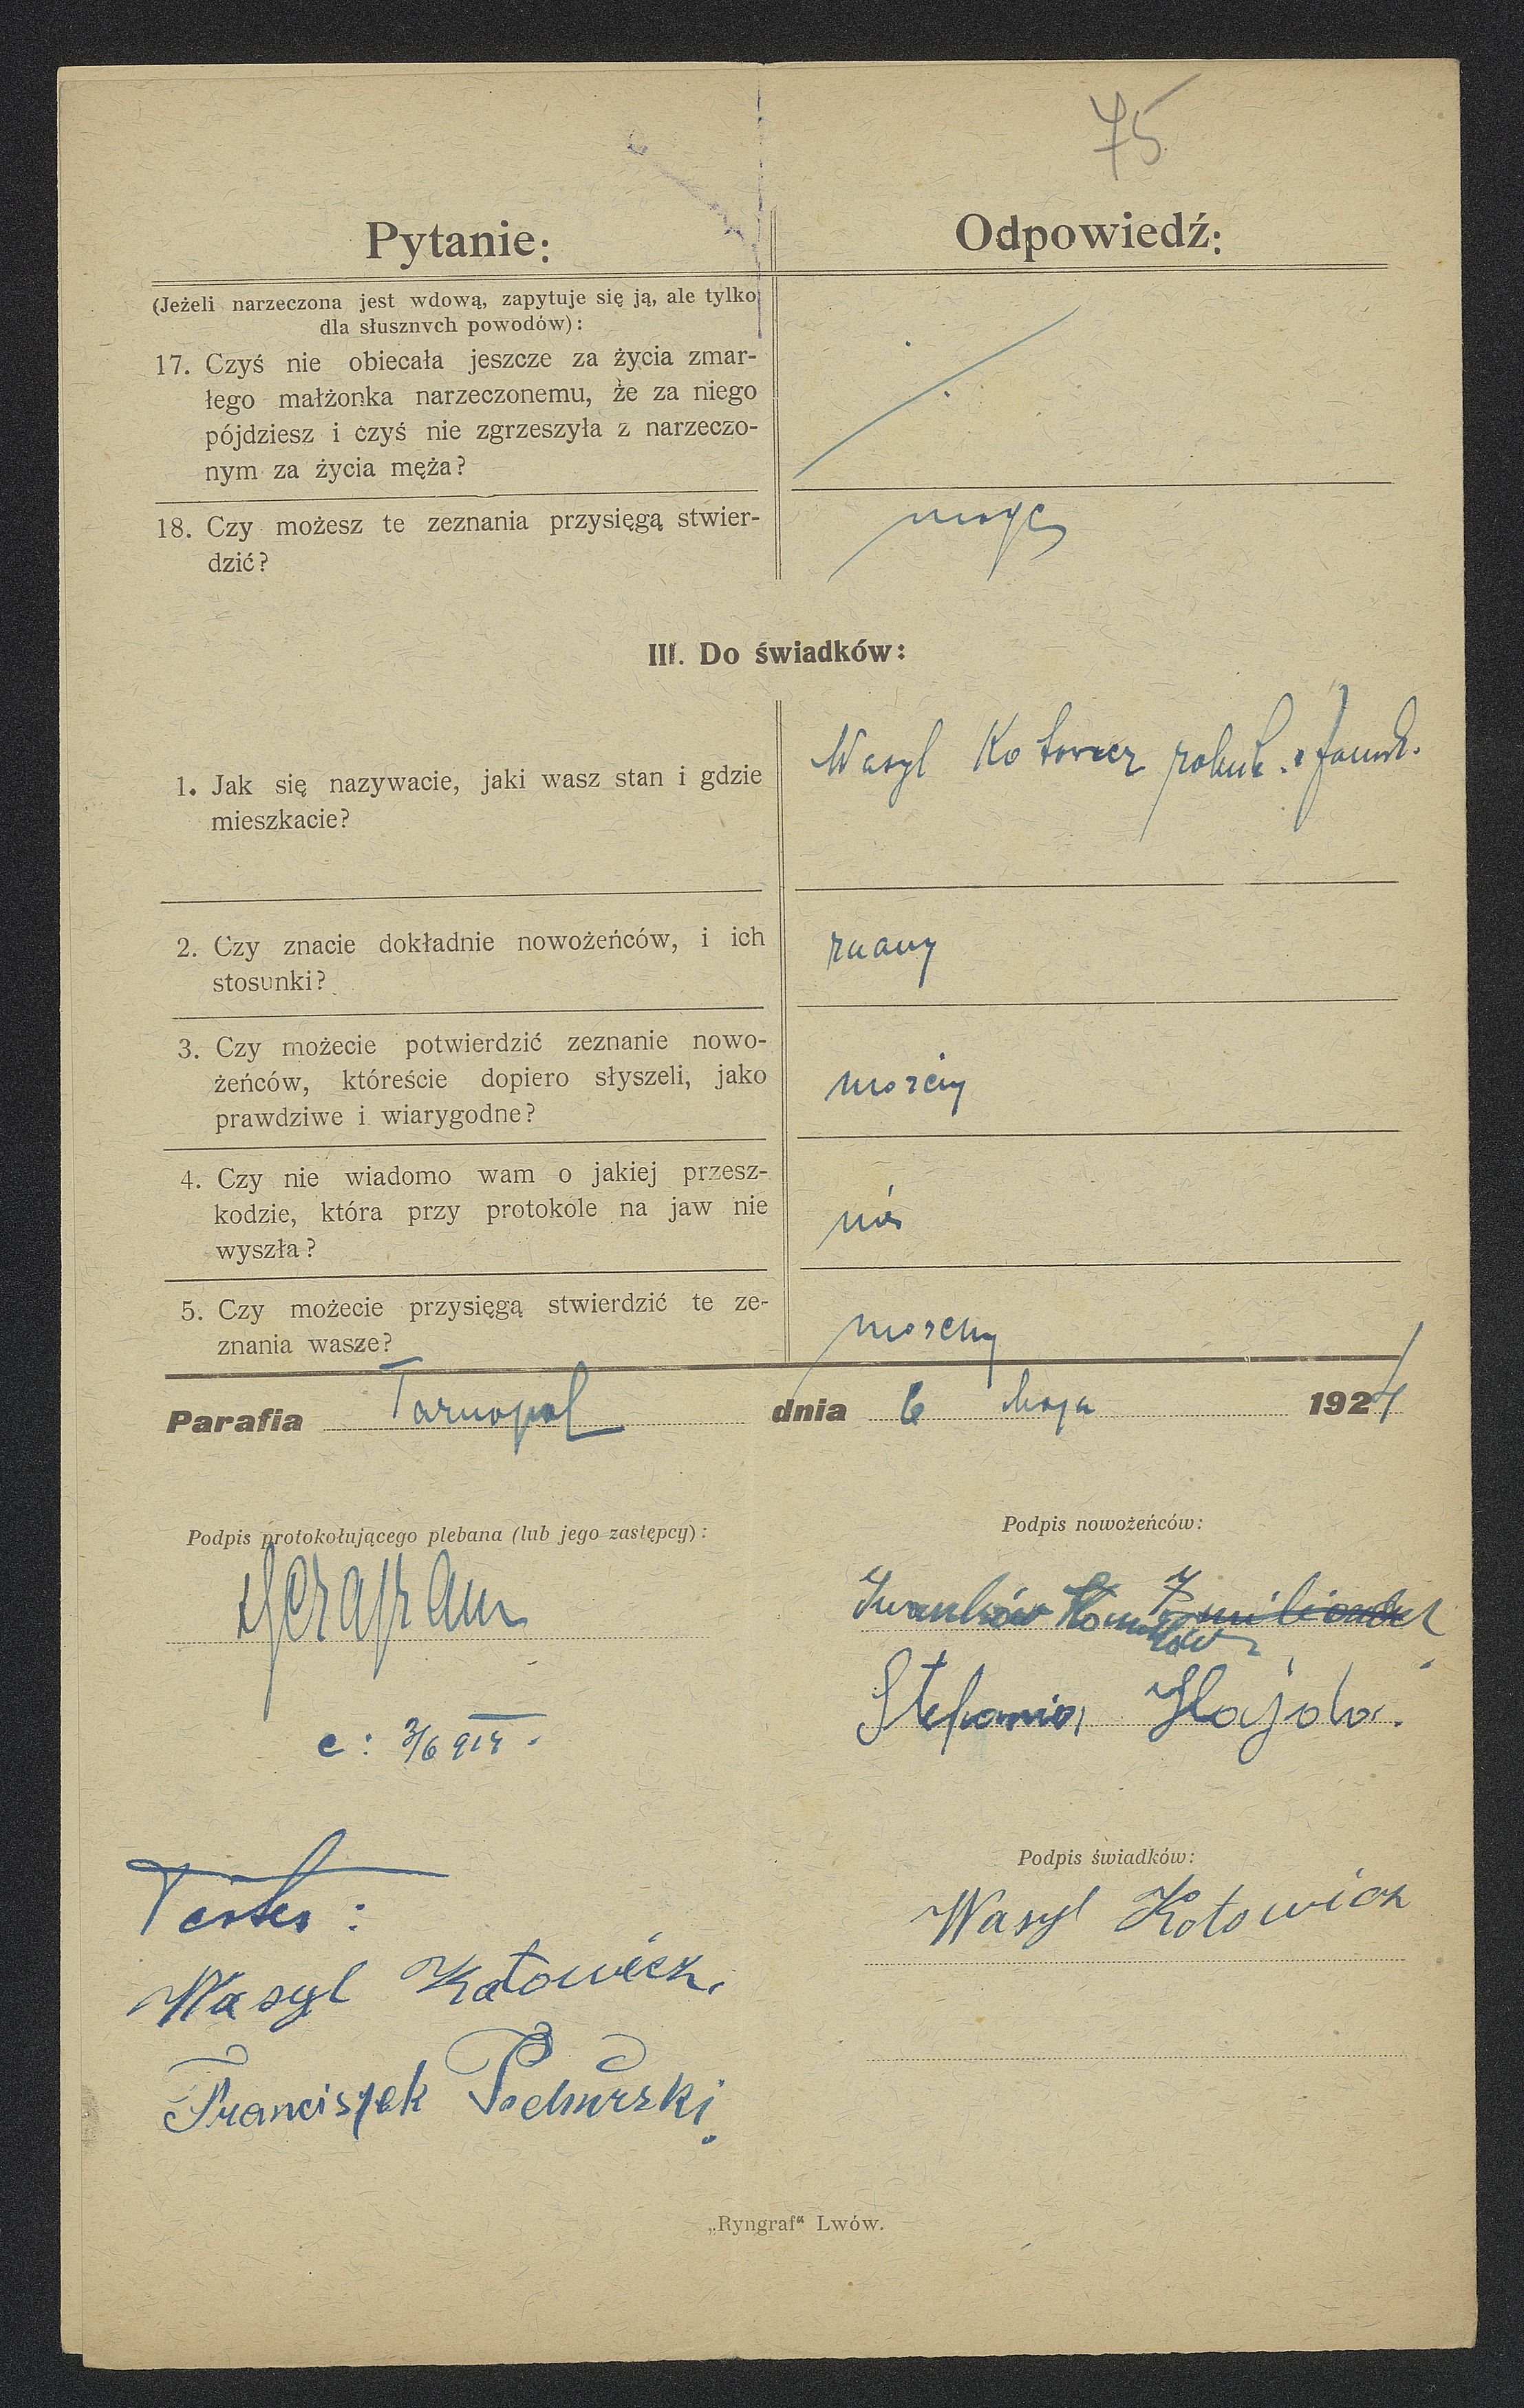 75
Pytanie:
Odpowiedź:
(Jeżeli narzeczona jest wdową, zapytuje się ją, ale tylko
dla słusznych powodów):
17. Czyś nie obiecała jeszcze za życia zmar-
łego małżonka narzeczonemu, że za niego
pójdziesz i czyś nie zgrzeszyła z narzeczo-
nym za życia męża?
18. Czy możesz te zeznania przysięgą stwier-
dzić?
mogę
III. Do świadków:
1. Jak się nazywacie, jaki wasz stan i gdzie
mieszkacie?
Wasyl Kotowicz
2. Czy znacie dokładnie nowożeńców, i ich
stosunki?
znamy
3. Czy możecie potwierdzić zeznanie nowo-
żeńców, któreście dopiero słyszeli, jako
prawdziwe i wiarygodne?
możemy
4. Czy nie wiadomo wam o jakiej przesz-
kodzie, która przy protokóle na jaw nie
wyszła?
nie
5. Czy możecie przysięgą stwierdzić te ze-
znania wasze?
możemy
Parafia Tarnopol dnia 6 maja 192
Podpis protokołującego plebana (lub jego zastępcy):
Podpis nowożeńców:
Iwanków
Stefania Hajda.
c: 3/6
Podpis świadków:
Testes:
Wasyl Kotowicz
Wasyl Kotowicz.
Franciszek
„Ryngraf“ Lwów.